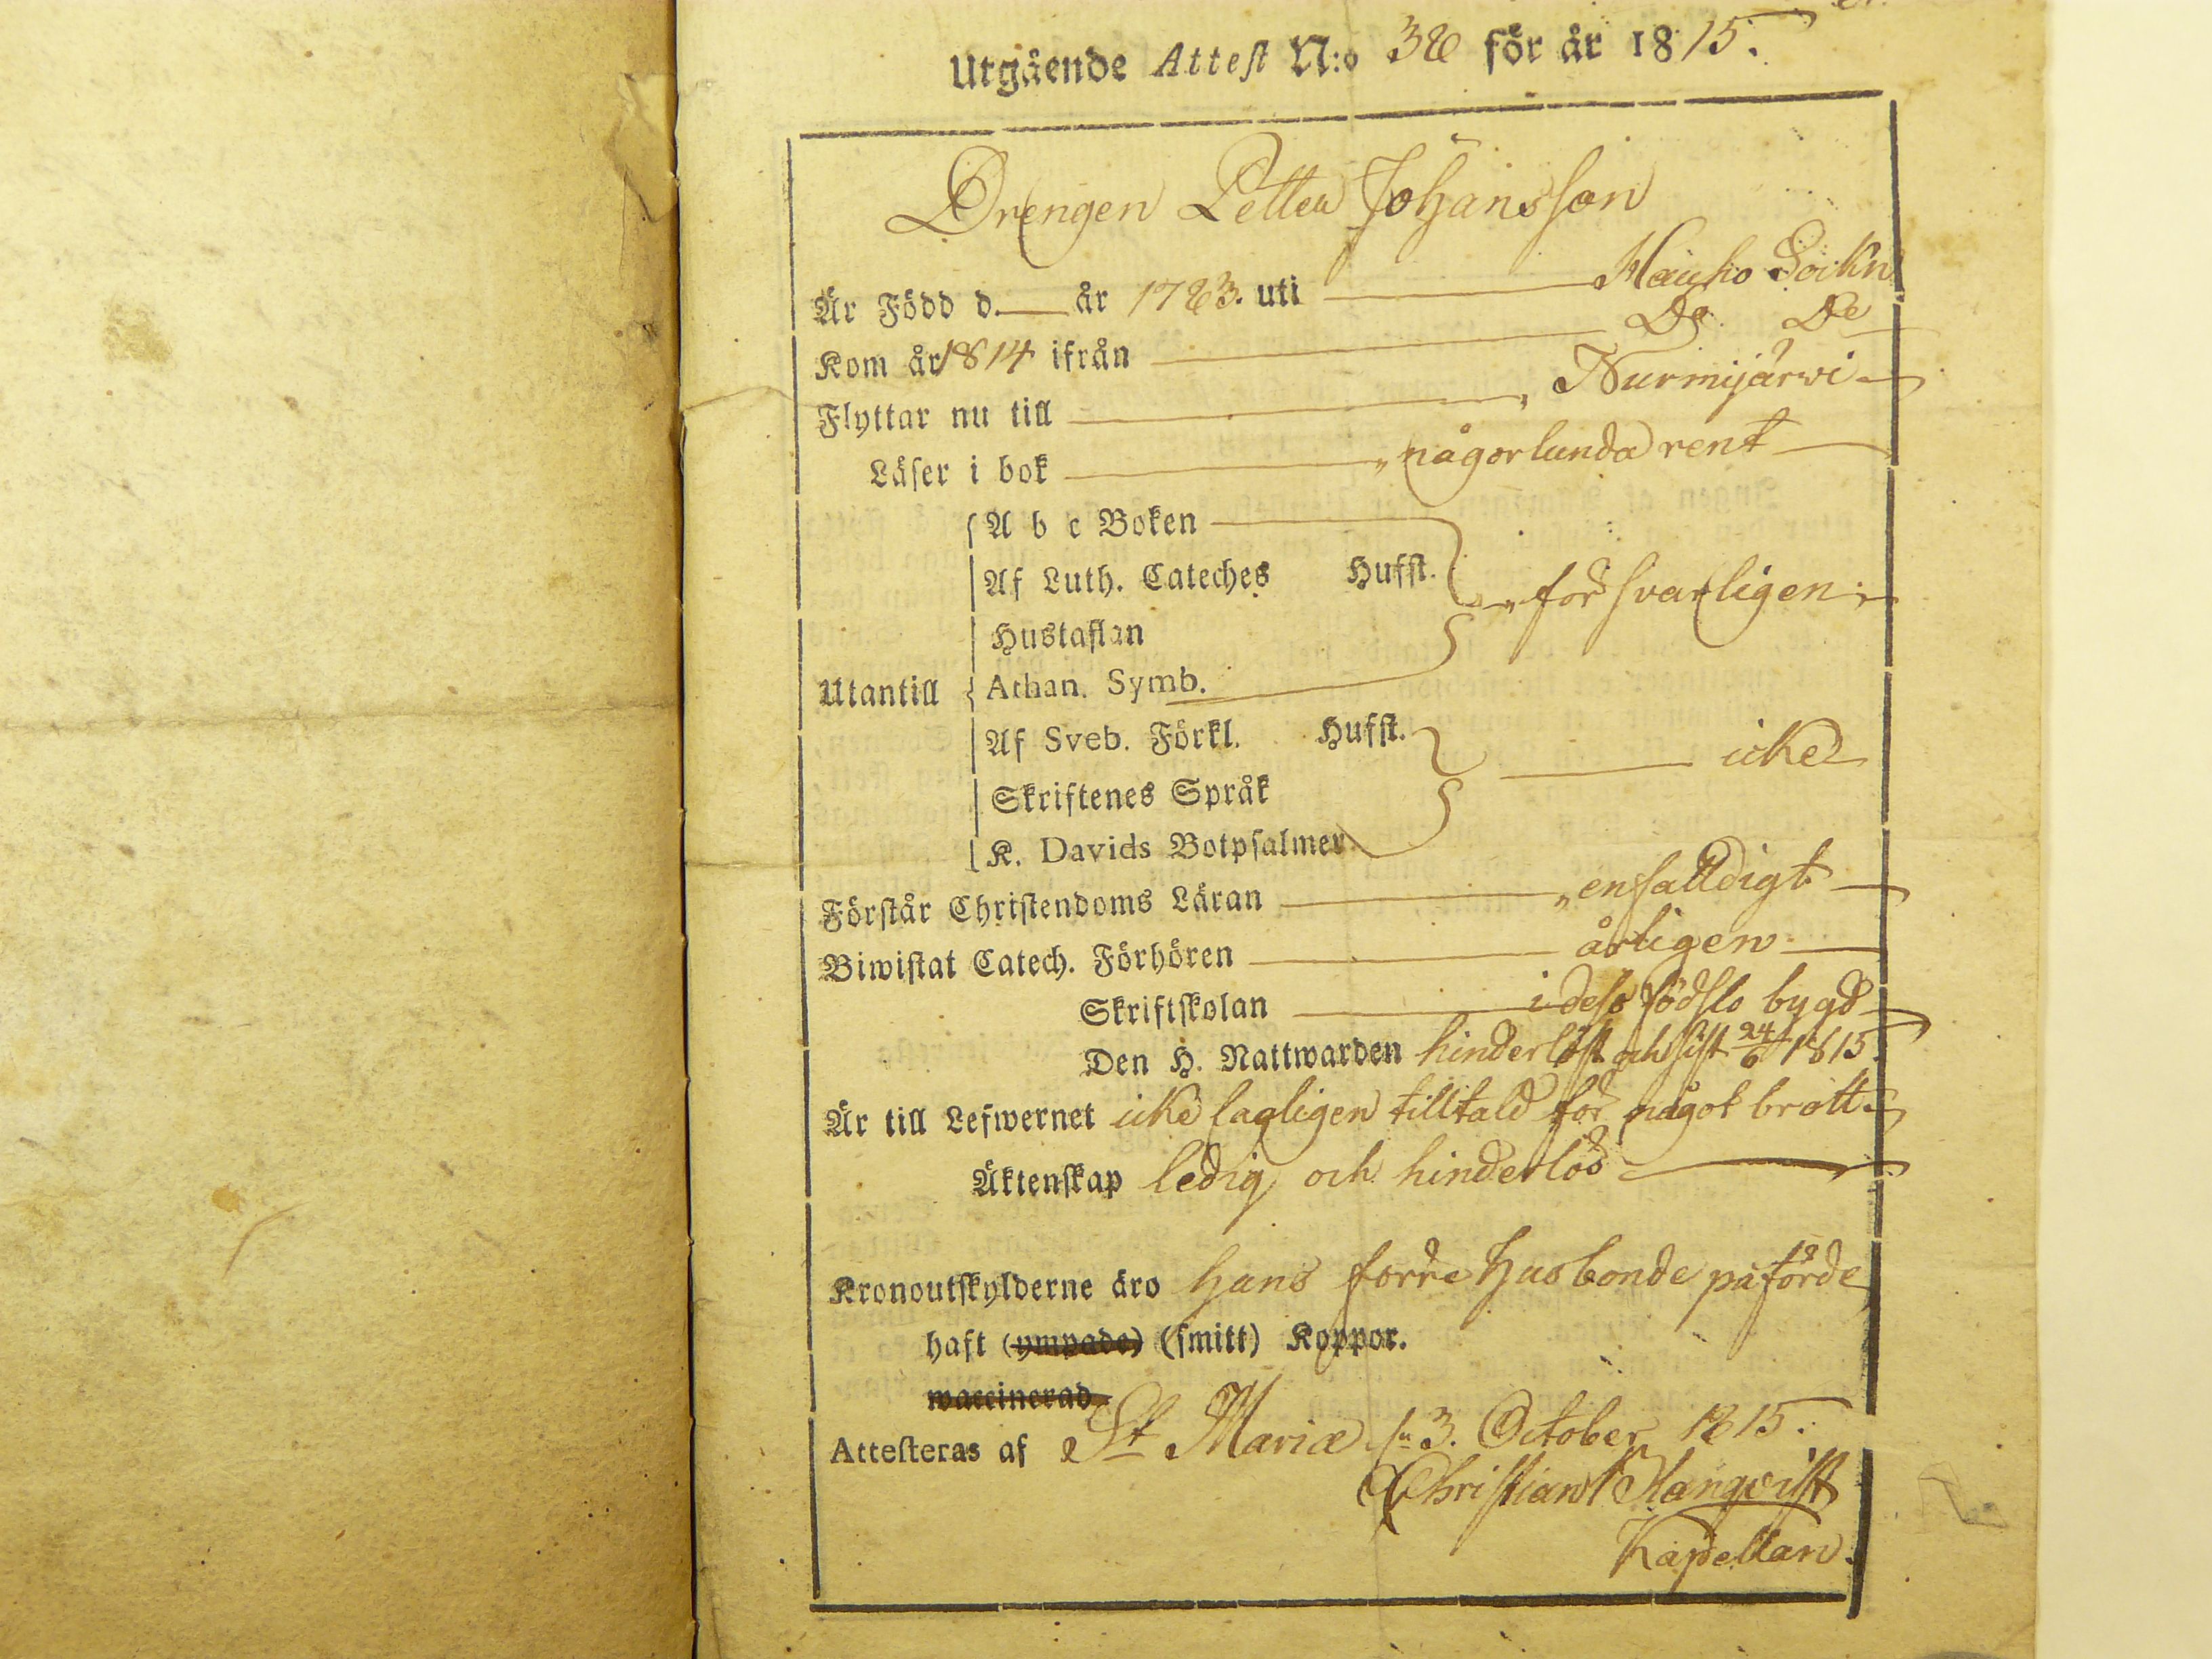 Utgående Attest N:o 38 för år 1815.
Drengen Petter Johansson
Är Född d. år 1783. uti Hauho Sockn
Kom år 1814 ifrån Do Do
Flyttar nu till Nurmijärwi
Läser i bok någorlunda rent
A b c Boken
Af Luth. Cateches Hufst. försvarligen
Hustaflan
Utantill Athan. Symb.
Af Sveb. Förkl. Hufst. icke
Skriftenes Språk
K. Davids Botpsalmer
Förstår Christendoms Läran enfalldigt
Biwistat Catech. Förhören årligen
Skriftskolan i dess födslo bygd
Den H. Nattwarden hinderlöst och sist 24/6 1815.
Är till Lefwernet icke lagligen tilltald för något brott
Äktenskap ledig och hinderlös
Kronoutskylderne äro hans förre Husbonde påförde
haft (ympade) (smitt) Koppor.
waccinerad
Attesteras af St Mariæ 3. October 1815.
Christian Slangvist
Kapellan.